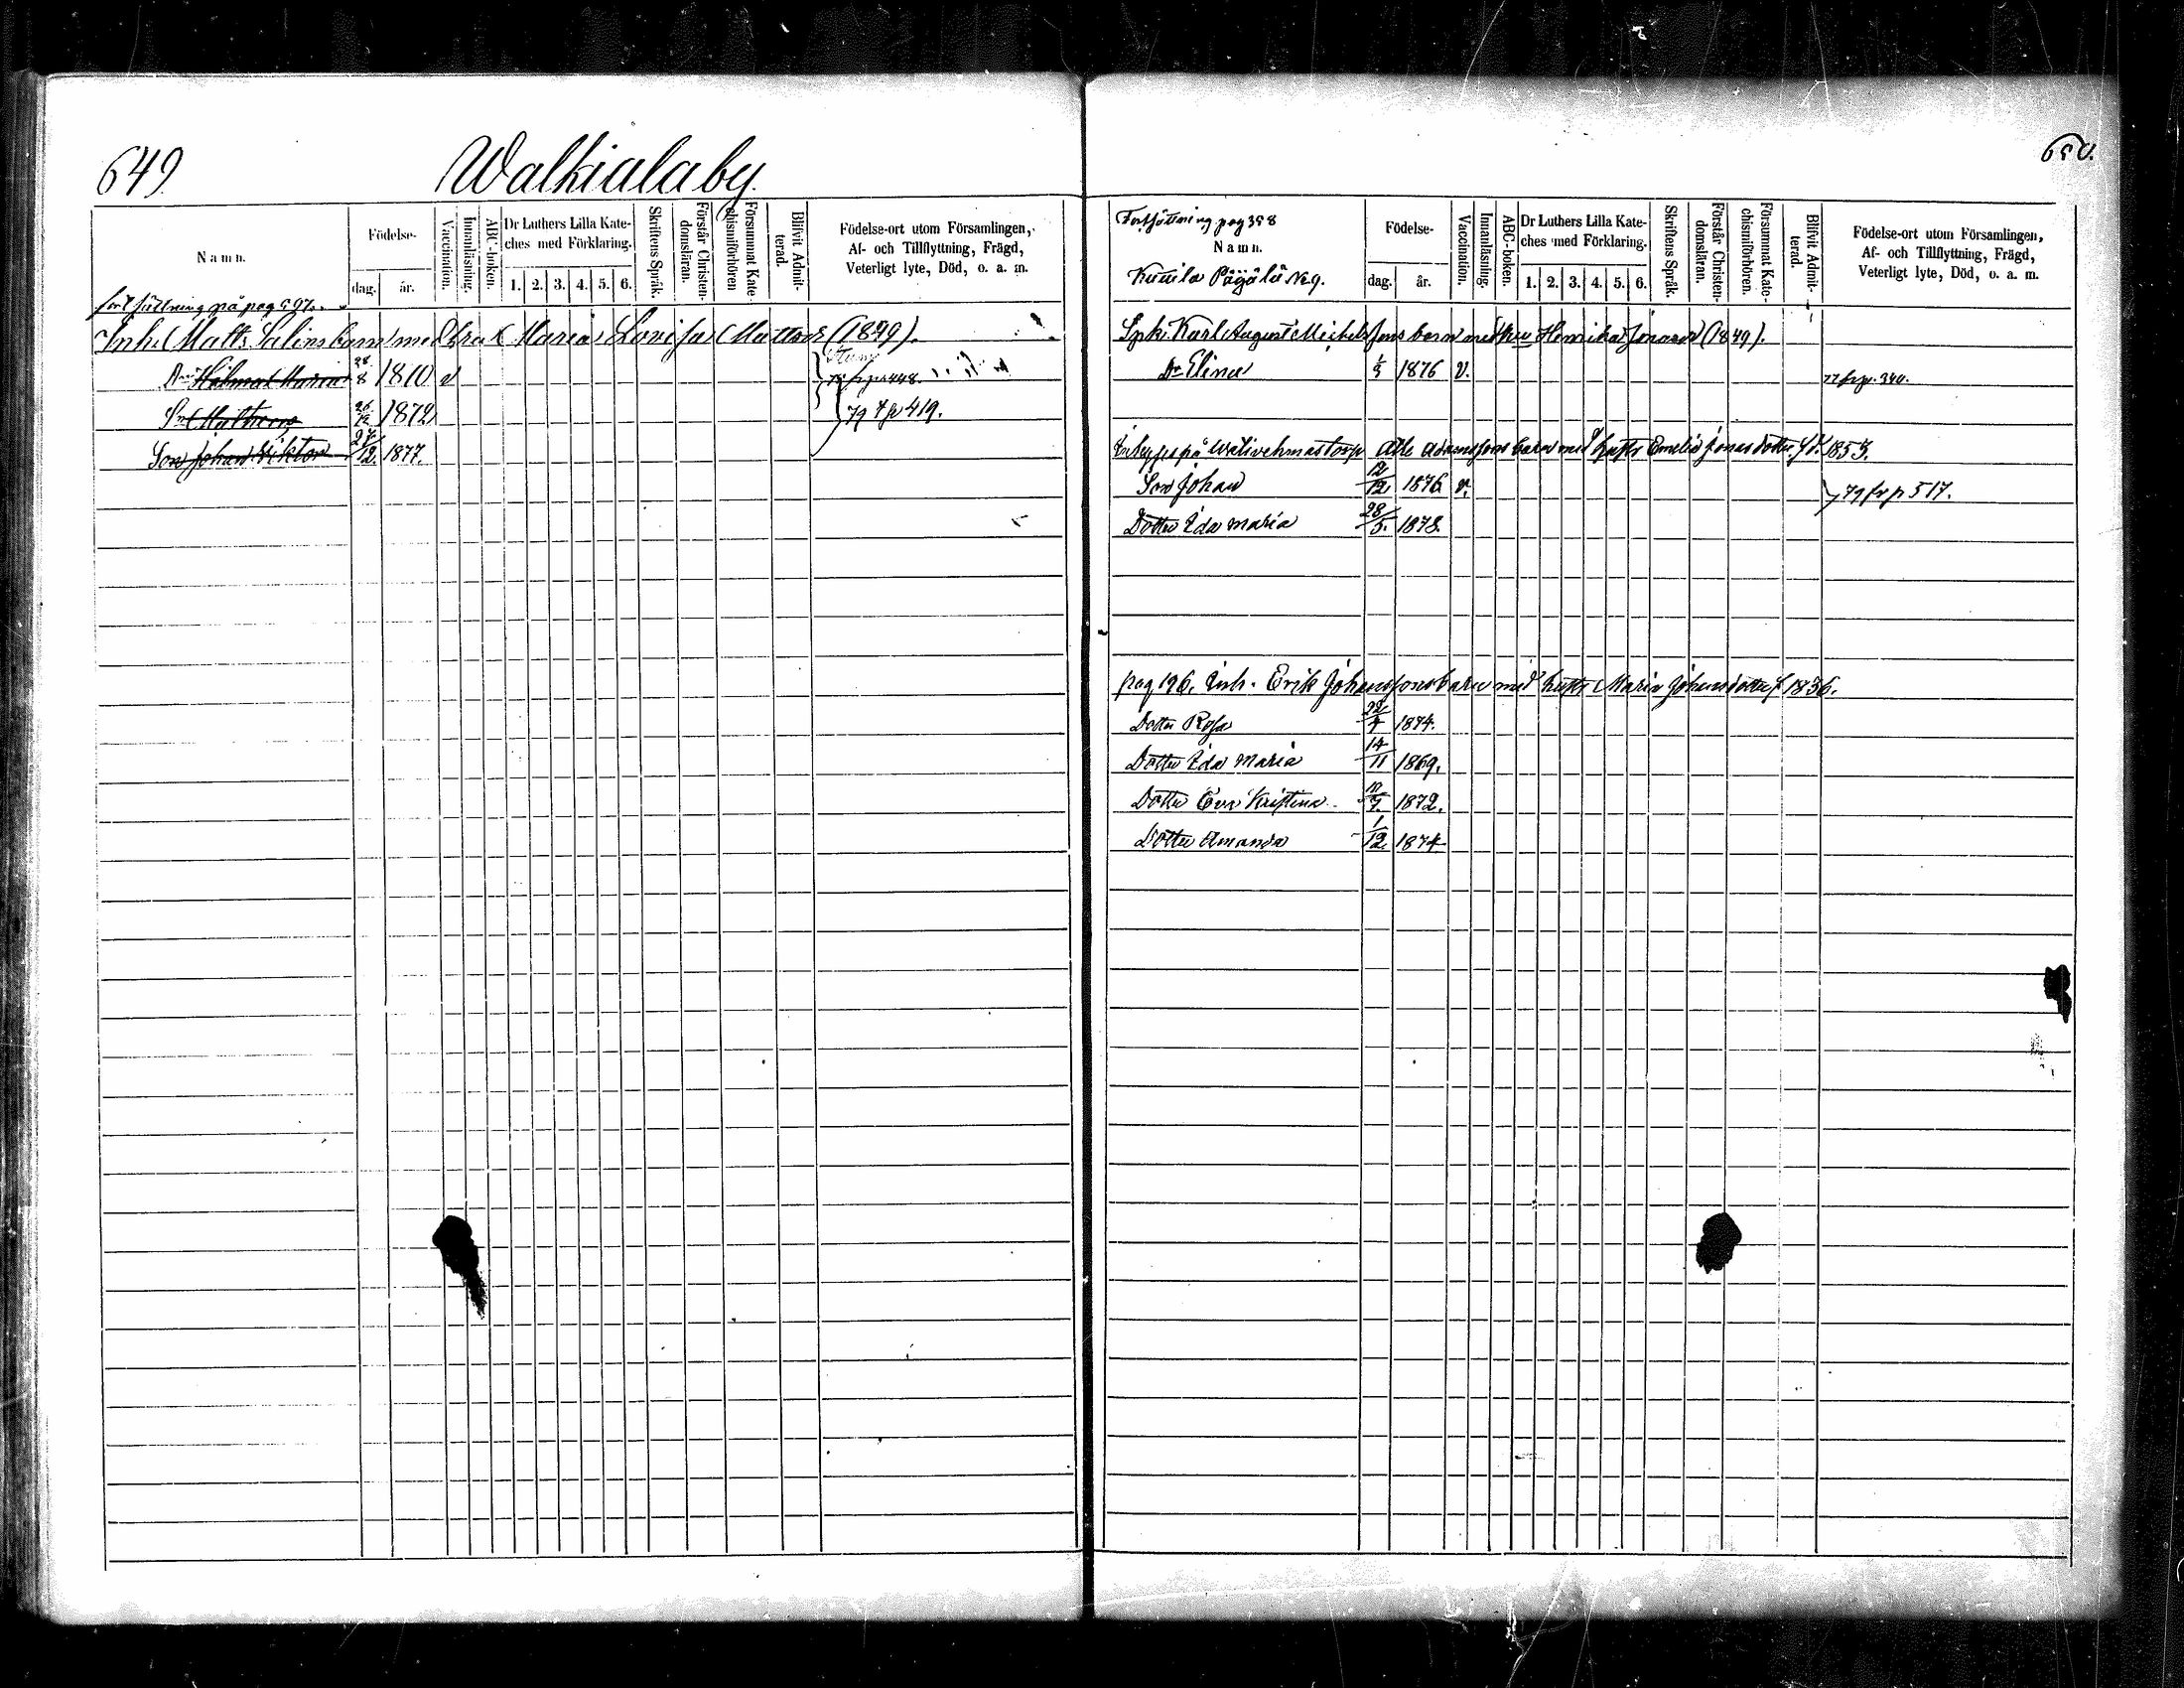 649.
Walkiala by.
Namn.
Födelse-
dag.
år.
Vaccination.
Innanläsning.
ABC-boken.
Dr Luthers Lilla Kate-
ches med Förklaring.
1. 2. 3. 4. 5. 6.
Skriftens Språk.
Förstår Christen-
domsläran.
Försummat Kate-
chismiförhören
Blifvit Admit-
terad.
Födelse-ort utom Församlingen,
Af- och Tillflyttning, Frägd,
Veterligt lyte, Död, o. a. m.
fortsättning på pag 597.
Inh. Matts Salins barn med Maria Lovisa Mattsdr
Hilma Maria 28/8 18 v 448.
Sn 1872 79 419.
Son Johan Viktor 12. 1877.
650.
Fortsättning pag 358
Namn.
Kumila Pägälä No 9.
Födelse-
dag.
år.
Vaccination.
Innanläsning.
ABC-boken.
Dr Luthers Lilla Kate-
ches med Förklaring.
1. 2. 3. 4. 5. 6.
Skriftens Språk.
Förstår Christen-
domsläran.
Försummat Kate-
chismiförhören.
Blifvit Admit-
terad.
Födelse-ort utom Församlingen,
Af- och Tillflyttning, Frägd,
Veterligt lyte, Död, o. a. m.
Karl August Michelssons barn med Hu Henrika Jonasdr (1849).
Dr Elina 1876 v. 77 frp. 340.
på Adamssons barn med hustr Emelia Jonasdotter f. 1853.
Son Johan 12/12 1876 v. 79 frp 517.
Dotter Ida Maria 28/5. 1878.
pag 196. Inh. Erik Johanssons barn med hustr Maria Johansdotter f 1836.
Dotter Rosa 1874.
Dotter Ida Maria 14/11 1869.
Dotter Eva Kristina 11/7. 1872.
Dotter Amanda 1/12. 1874